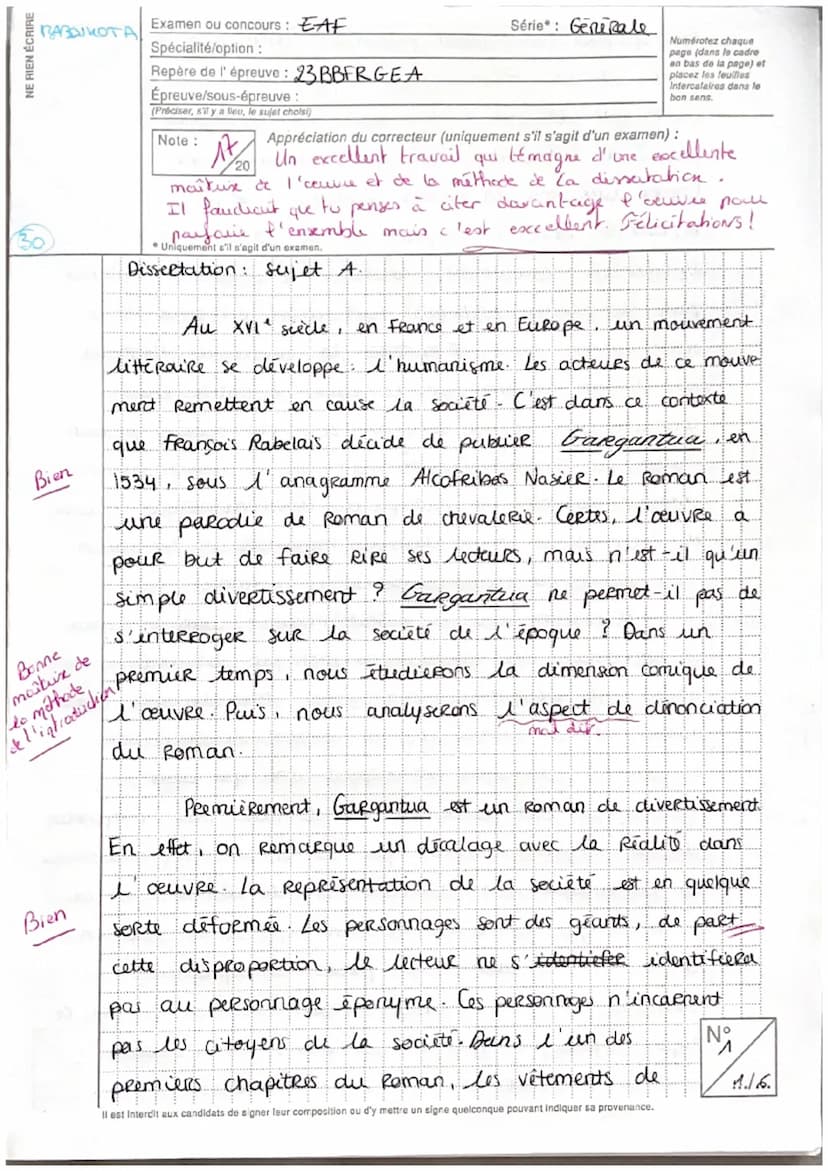 NE RIEN ÉCRIRE
Examen ou concours : EAF Série* : Générale
Spécialité/option :
Repère de l'épreuve : 23BBFRGEA
Épreuve/sous-épreuve :
(Préciser, s'il y a lieu, le sujet choisi)
Numérotez chaque
page (dans le cadre
en bas de la page) et
placez les feuilles
intercalaires dans le
bon sens.
Note : 17 /20
Appréciation du correcteur (uniquement s'il s'agit d'un examen) :
Un excellent travail qui témoigne d'une excellente
maîtrise de l'œuvre et de la méthode de la dissertation.
Il faudrait que tu penses à citer davantage l'œuvre pour
parfaire l'ensemble mais c'est excellent. Félicitations !
* Uniquement s'il s'agit d'un examen.
30
Dissertation : sujet A.
Au XVIe siècle, en France et en Europe, un mouvement
littéraire se développe : l'humanisme. Les acteurs de ce mouve
ment remettent en cause la société. C'est dans ce contexte
que François Rabelais décide de publier Gargantua, en
Bien
1534, sous l'anagramme Alcofribas Nasier. Le roman est
une parodie de roman de chevalerie. Certes, l'œuvre a
pour but de faire rire ses lecteurs, mais n'est-il qu'un
simple divertissement ? Gargantua ne permet-il pas de
s'interroger sur la société de l'époque ? Dans un
Bonne
maîtrise de
la méthode
de l'introduction
premier temps, nous étudierons la dimension comique de
l'œuvre. Puis, nous analyserons l'aspect de dénonciation
mal dit.
du roman.
Premièrement, Gargantua est un roman de divertissement.
En effet, on remarque un décalage avec la réalité dans
l'œuvre. La représentation de la société est en quelque
Bien
sorte déformée. Les personnages sont des géants, de part
cette disproportion, le lecteur ne s'identifiera
pas au personnage éponyme. Ces personnages n'incarnent
pas les citoyens de la société. Dans l'un des
premiers chapitres du roman, les vêtements de
N°
1
1./6.
Il est interdit aux candidats de signer leur composition ou d'y mettre un signe quelconque pouvant indiquer sa provenance.